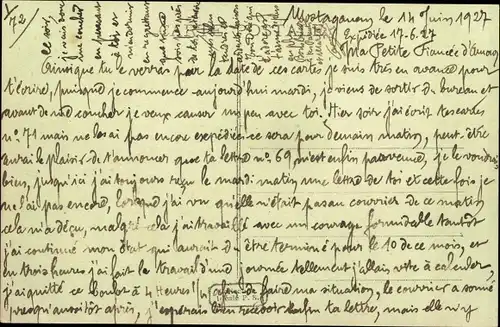 1/72
Mostaganem le 14 Juin 1927
Expédiée 17-6-27
Ma Petite Fiancée d'Amour
ce soir,
je vais donc
me coucher
en pensant
à toi et
en regrettant
Ainsi que tu verras par la date de ces cartes je suis très en avance pour
t'écrire, puisque je commence aujourd'hui mardi, je viens de sortir du bureau et
avant de me coucher je veux causer un peu avec toi. Hier soir j'ai écrit tes cartes
n° 71 mais ne les ai pas encore expédiées ce sera pour demain matin, peut-être
aurai le plaisir de t'annoncer que ta lettre n° 69 m'est enfin parvenue, je le voudrais
bien, jusqu'ici j'ai toujours reçu le mardi matin une lettre de toi et cette fois je
ne l'ai pas encore, lorsque j'ai vu qu'elle n'était pas au courrier de ce matin
cela m'a déçu, malgré cela j'ai travaillé avec un courage formidable tantôt
j'ai continué mon état qui aurait dû être terminé pour le 10 de ce mois, et
en trois heures j'ai fait le travail d'une journée tellement j'allais vite à calculer,
j'ai quitté ce boulot à 4 Heures 1/4 afin de faire ma situation, le courrier a sonné
presqu'aussitôt après, j'espérais bien recevoir enfin ta lettre, mais elle n'y